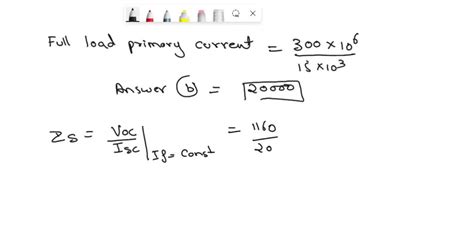 Full load primary current = 300 × 10⁶ / 15 × 10³
Answer (b) = 20000
Zs = Voc / Isc | If = Const = 1160 / 20